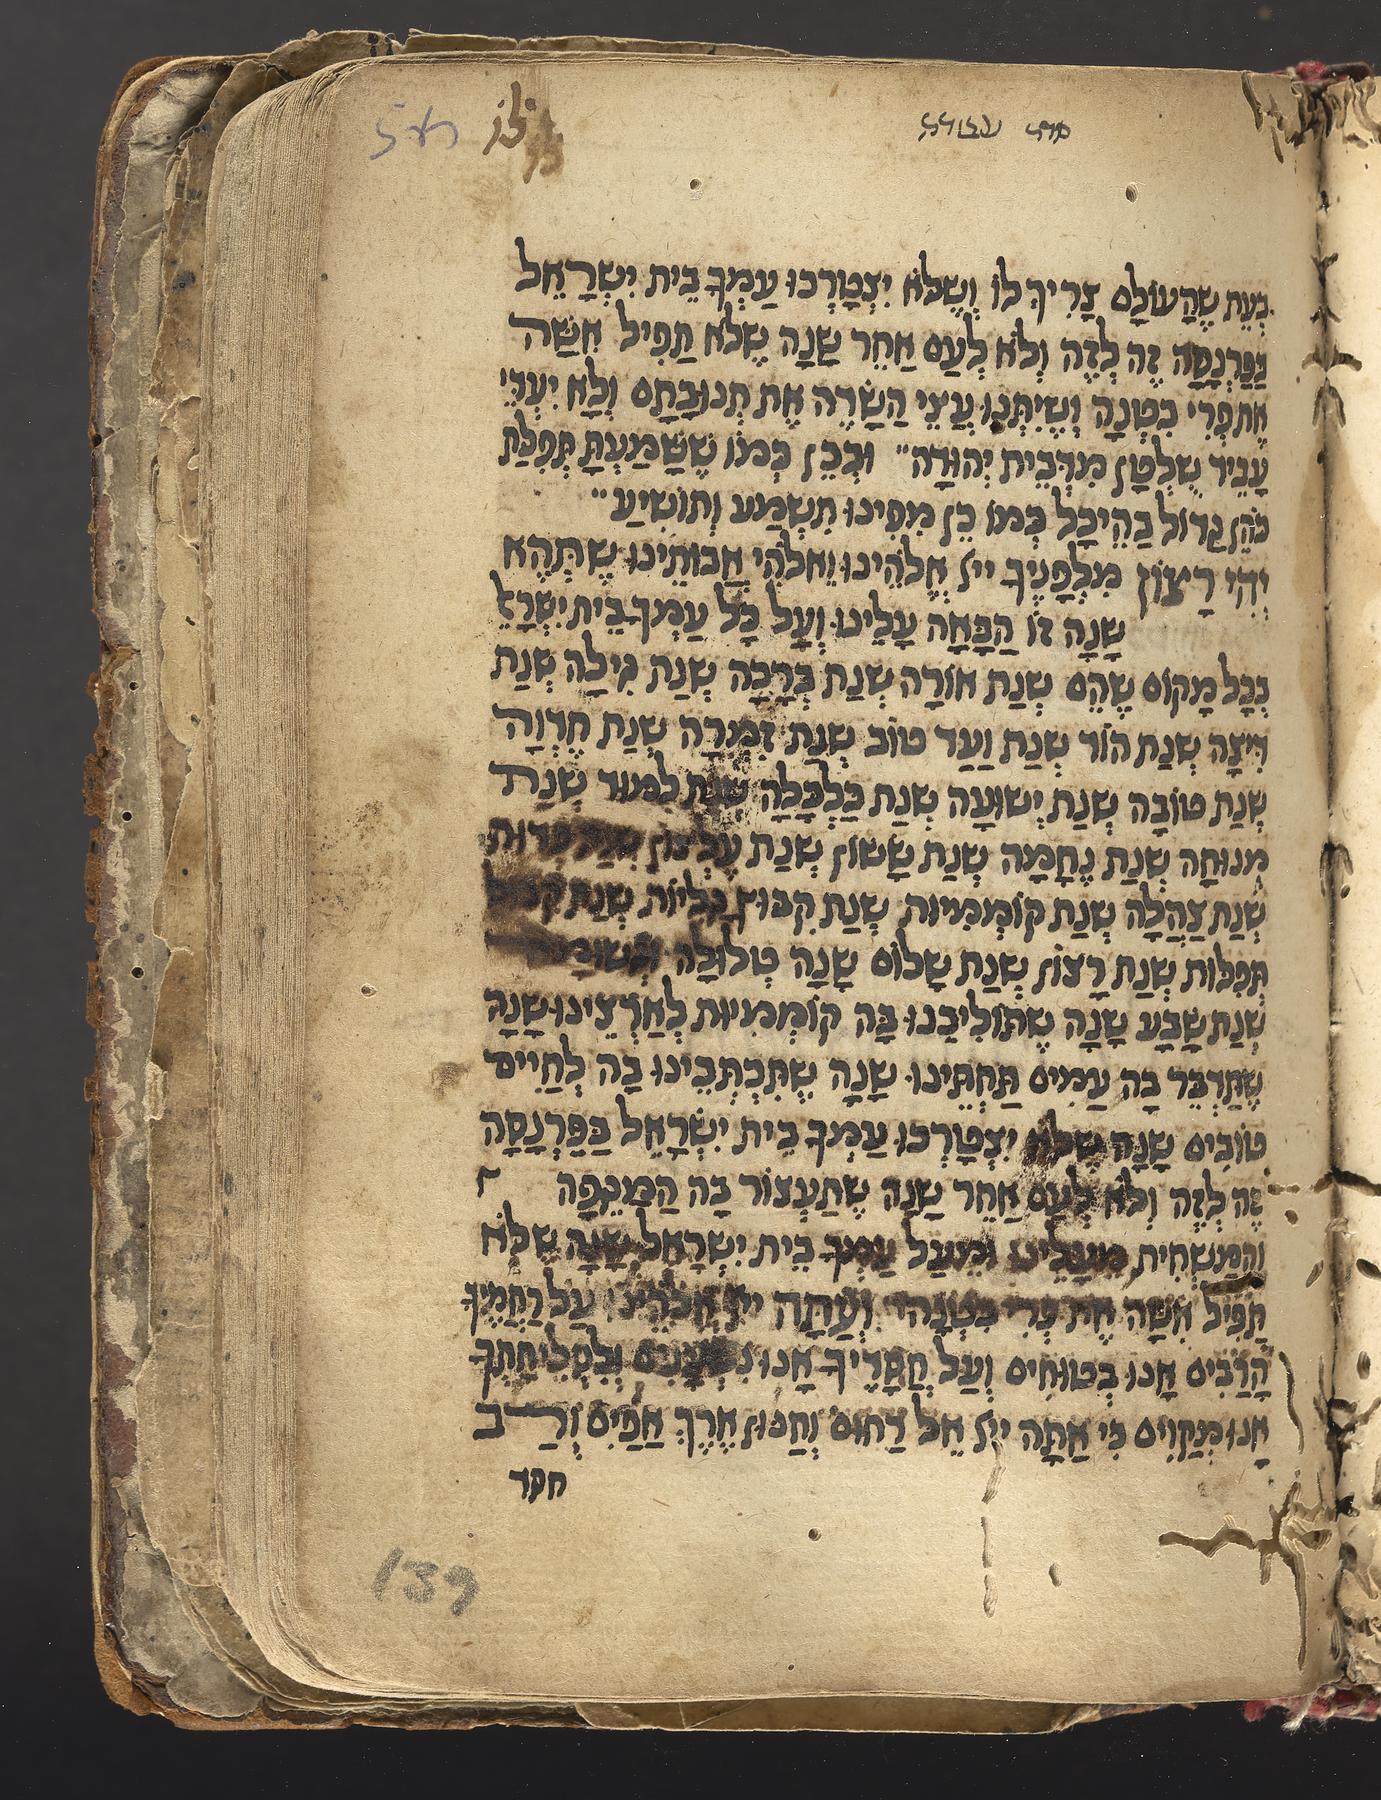 סדר עבודה
בְּעֵת שֶׁהָעוֹלָם צָרִיךְ לוֹ וְשֶׁלֹּא יִצְטָרְכוּ עַמְּךָ בֵּית יִשְׂרָאֵל
בְּפַרְנָסָה זֶה לְזֶה וְלֹא לְעַם אַחֵר שָׁנָה שֶׁלֹּא תַפִּיל אִשָּׁה
אֶת פְּרִי בִטְנָהּ וְשֶׁיִּתְּנוּ עֲצֵי הַשָּׂדֶה אֶת תְּנוּבָתָם וְלָא יִעְדֵּי
עָבֵיד שֻׁלְטָן מִדְּבֵית יְהוּדָה״ וּבְכֵן כְּמוֹ שֶׁשָּׁמַעְתָּ תְּפִלַּת
כֹּהֵן גָּדוֹל בַּהֵיכָל כְּמוֹ כֵן מִפִּינוּ תִשְׁמַע וְתוֹשִׁיעַ״
יְהִי רָצוֹן מִלְּפָנֶיךָ ייי אֱלֹהֵינוּ וֵאלֹהֵי אֲבוֹתֵינוּ שֶׁתְּהֵא
שָׁנָה זוֹ הַבָּאָה עָלֵינוּ וְעַל כָּל עַמְּךָ בֵּית יִשְׂרָאֵל
בְּכָל מָקוֹם שֶׁהֵם שְׁנַת אוֹרָה שְׁנַת בְּרָכָה שְׁנַת גִּילָה שְׁנַת
דִּיצָה שְׁנַת הוֹד שְׁנַת וַעַד טוֹב שְׁנַת זִמְרָה שְׁנַת חֶדְוָה
שְׁנַת טוֹבָה שְׁנַת יְשׁוּעָה שְׁנַת כַּלְכָּלָה שְׁנַת לִמּוּד שְׁנַת
מְנוּחָה שְׁנַת נֶחָמָה שְׁנַת שָׂשׂוֹן שְׁנַת עֶלְצוֹן שְׁנַת פְּדוּת
שְׁנַת צָהֳלָה שְׁנַת קוֹמְמִיּוּת שְׁנַת קִבּוּץ גָּלֻיּוֹת שְׁנַת קִבּוּל
תְּפִלּוֹת שְׁנַת רָצוֹן שְׁנַת שָׁלוֹם שָׁנָה טְלוּלָה וּגְשׁוּמָה
שְׁנַת שָׂבָע שָׁנָה שֶׁתּוֹלִיכֵנוּ בָּהּ קוֹמְמִיּוּת לְאַרְצֵינוּ שָׁנָה
שֶׁתַּדְבֵּר בָּהּ עַמִּים תַּחְתֵּינוּ שָׁנָה שֶׁתִּכְתְּבֵינוּ בָהּ לְחַיִּים
טוֹבִים שָׁנָה שֶׁלֹּא יִצְטָרְכוּ עַמְּךָ בֵּית יִשְׂרָאֵל בְּפַרְנָסָה
זֶה לְזֶה וְלֹא לְעַם אַחֵר שָׁנָה שֶׁתַּעֲצוֹר בָּהּ הַמַּגֵּפָה
וְהַמַּשְׁחִית מֵעָלֵינוּ וּמֵעַל עַמְּךָ בֵּית יִשְׂרָאֵל שָׁנָה שֶׁלֹּא
תַפִּיל אִשָּׁה אֶת פְּרִי בִטְנָהּ וְעַתָּה ייי אֱלֹהֵינוּ עַל רַחֲמֶיךָ
הָרַבִּים אָנוּ בְטוּחִים וְעַל חֲסָדֶיךָ אָנוּ נִשְׁעָנִים וְלִסְלִיחָתְךָ
אָנוּ מְקַוִּים כִּי אַתָּה ייי אֵל רַחוּם וְחַנּוּן אֶרֶךְ אַפַּיִם וְרַב
חסד
139